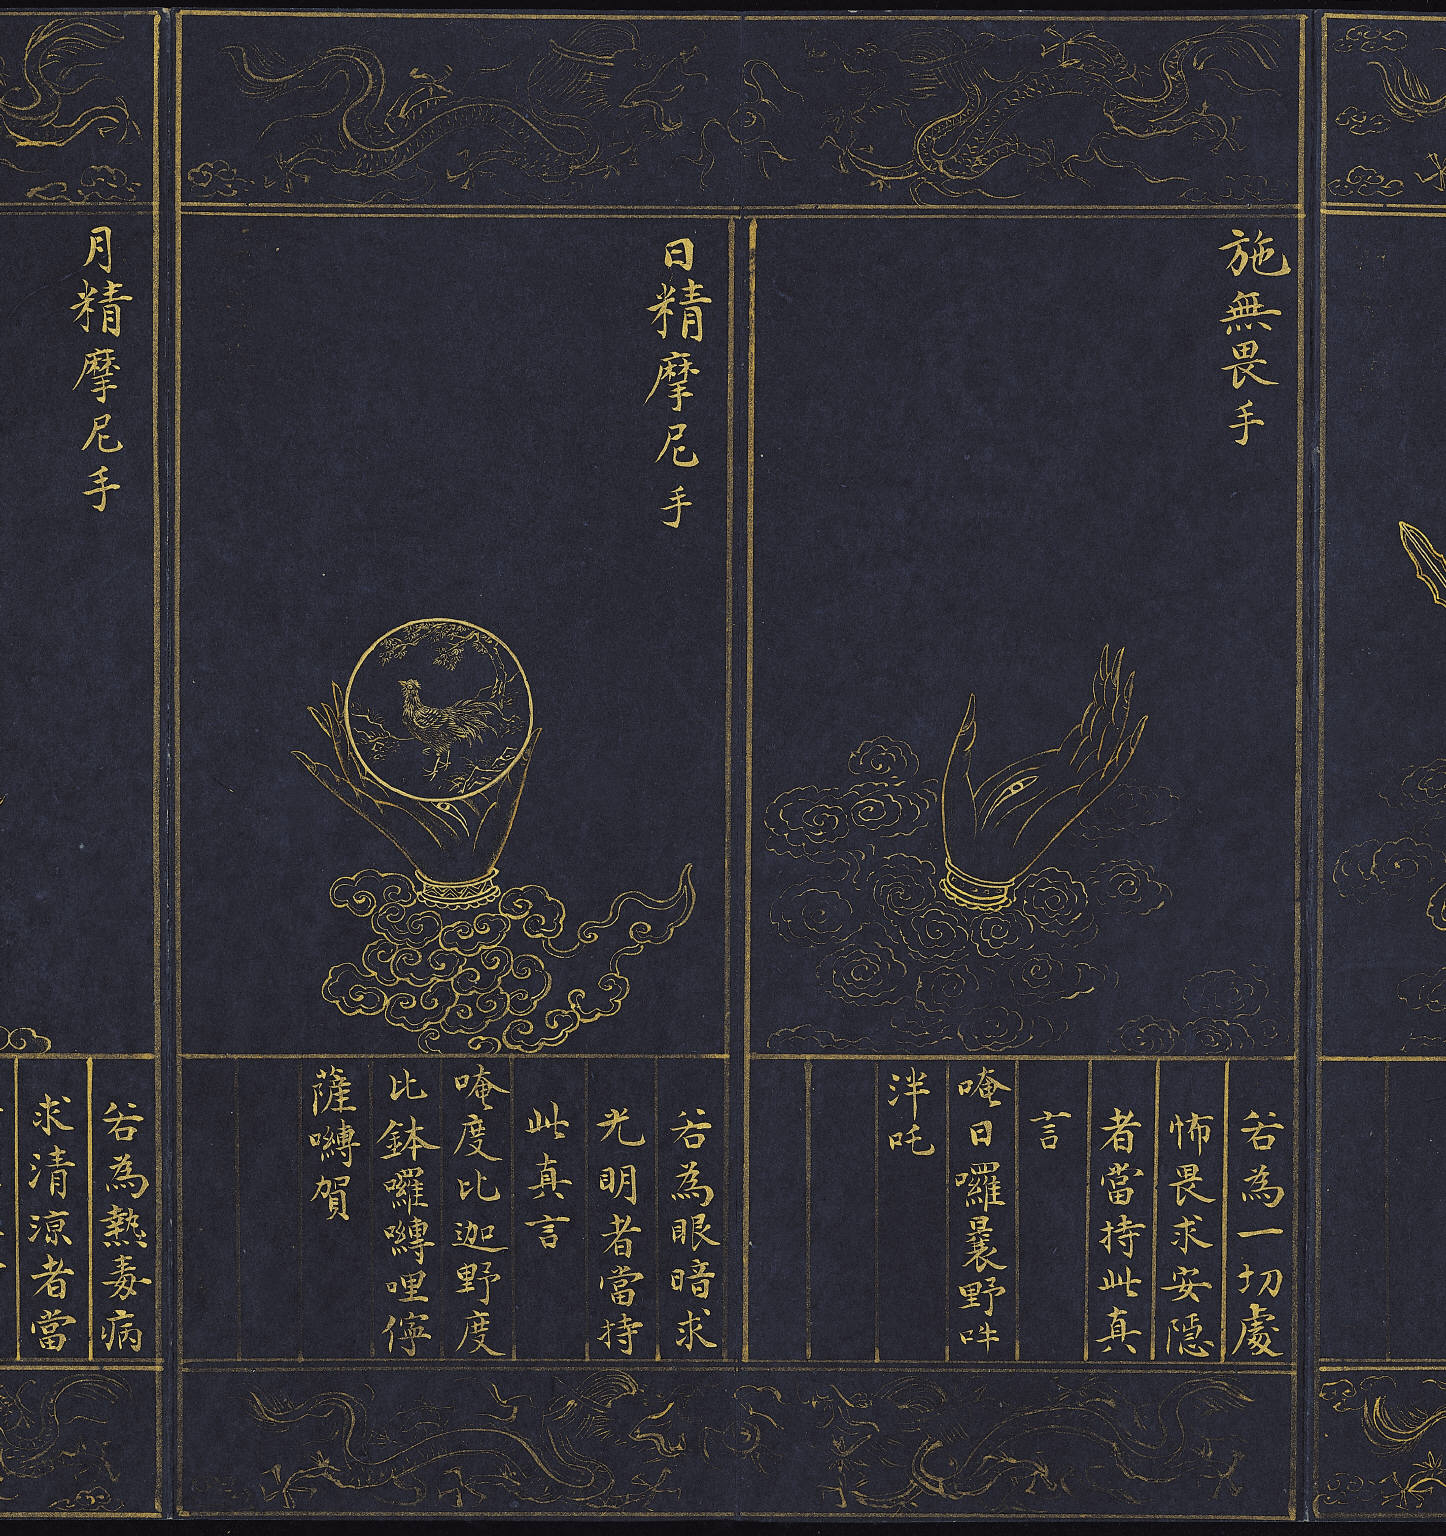 施無畏手
若為一切處
怖畏求安隱
者當持此真
言
唵日囉曩野吽
泮吒
日精摩尼手
若為眼暗求
光明者當持
此真言
唵度比迦野度
比鉢囉嚩哩儜
薩嚩賀
月精摩尼手
若為熱毒病
求清涼者當